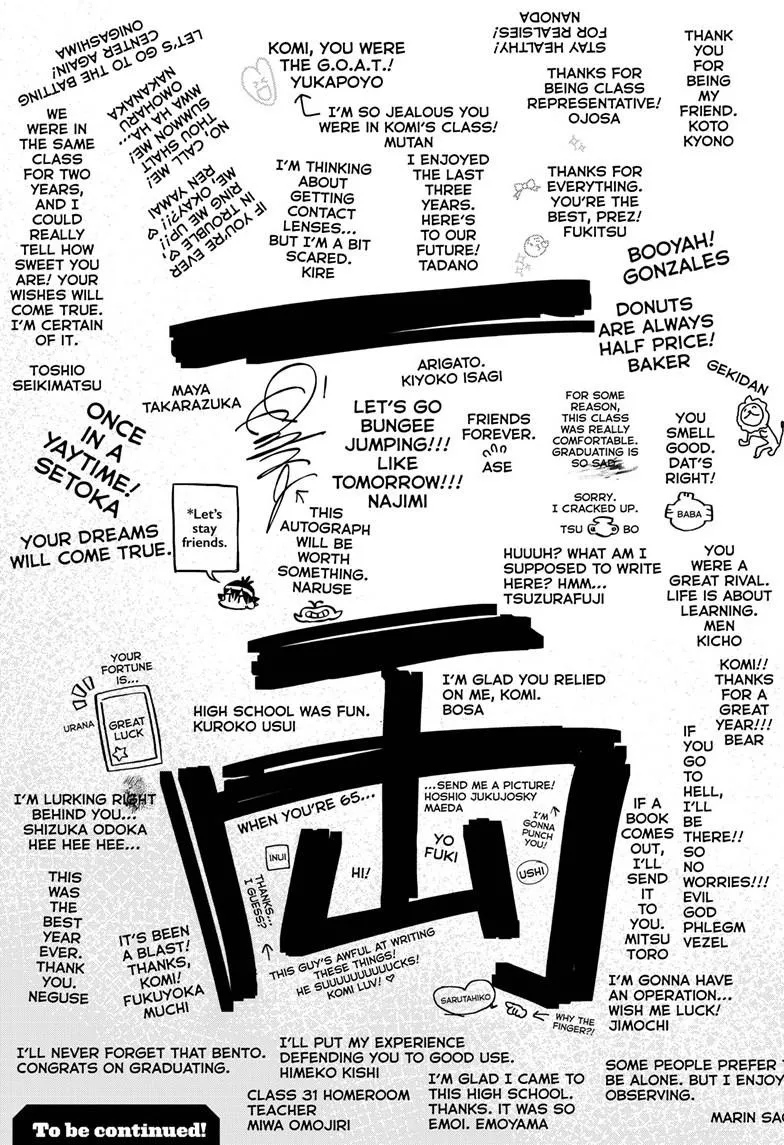 LET'S GO TO THE BATTING
CENTER AGAIN!
ONIGASHIMA
KOMI, YOU WERE
THE G.O.A.T.!
YUKAPOYO
STAY HEALTHY!
FOR REALSIES!
NANODA
THANK
YOU
FOR
BEING
MY
FRIEND.
KOTO
KYONO
WE
WERE IN
THE SAME
CLASS
FOR TWO
YEARS,
AND I
COULD
REALLY
TELL HOW
SWEET YOU
ARE! YOUR
WISHES WILL
COME TRUE.
I'M CERTAIN
OF IT.
TOSHIO
SEIKIMATSU
NO, CALL ME!
THOU SHALT
SUMMON ME!
MWA HA HA...
OMOHARU
NAKANAKA
I'M SO JEALOUS YOU
WERE IN KOMI'S CLASS!
MUTAN
THANKS FOR
BEING CLASS
REPRESENTATIVE!
OJOSA
IF YOU'RE EVER
IN TROUBLE,
RING ME UP!! ♡
ME, OKAY?!! ♡
REN YAMAI
I'M THINKING
ABOUT
GETTING
CONTACT
LENSES...
BUT I'M A BIT
SCARED.
KIRE
I ENJOYED
THE LAST
THREE
YEARS.
HERE'S
TO OUR
FUTURE!
TADANO
THANKS FOR
EVERYTHING.
YOU'RE THE
BEST, PREZ!
FUKITSU
BOOYAH!
GONZALES
DONUTS
ARE ALWAYS
HALF PRICE!
BAKER
MAYA
TAKARAZUKA
ARIGATO.
KIYOKO ISAGI
GEKIDAN
ONCE
IN A
YAYTIME!
SETOKA
LET'S GO
BUNGEE
JUMPING!!!
LIKE
TOMORROW!!!
NAJIMI
FRIENDS
FOREVER.
ASE
FOR SOME
REASON,
THIS CLASS
WAS REALLY
COMFORTABLE.
GRADUATING IS
SO SAD.
SORRY.
I CRACKED UP.
TSU BO
YOU
SMELL
GOOD.
DAT'S
RIGHT!
BABA
YOUR DREAMS
WILL COME TRUE.
*Let's
stay
friends.
THIS
AUTOGRAPH
WILL BE
WORTH
SOMETHING.
NARUSE
HUUUH? WHAT AM I
SUPPOSED TO WRITE
HERE? HMM...
TSUZURAFUJI
YOU
WERE A
GREAT RIVAL.
LIFE IS ABOUT
LEARNING.
MEN
KICHO
YOUR
FORTUNE
IS...
URANA
GREAT
LUCK
HIGH SCHOOL WAS FUN.
KUROKO USUI
I'M GLAD YOU RELIED
ON ME, KOMI.
BOSA
KOMI!!
THANKS
FOR A
GREAT
YEAR!!!
BEAR
IF
YOU
GO
TO
HELL,
I'LL
BE
THERE!!
SO
NO
WORRIES!!!
EVIL
GOD
PHLEGM
VEZEL
I'M LURKING RIGHT
BEHIND YOU...
SHIZUKA ODOKA
HEE HEE HEE...
WHEN YOU'RE 65...
...SEND ME A PICTURE!
HOSHIO JUKUJOSKY
MAEDA
INUI
HI!
YO
FUKI
I'M
GONNA
PUNCH
YOU!
USHI
IF A
BOOK
COMES
OUT,
I'LL
SEND
IT
TO
YOU.
MITSU
TORO
THIS
WAS
THE
BEST
YEAR
EVER.
THANK
YOU.
NEGUSE
IT'S BEEN
A BLAST!
THANKS,
KOMI!
FUKUYOKA
MUCHI
THANKS...
I GUESS?
THIS GUY'S AWFUL AT WRITING
THESE THINGS!
HE SUUUUUUUUUCKS!
KOMI LUV! ♡
SARUTAHIKO
WHY THE
FINGER?!
I'M GONNA HAVE
AN OPERATION...
WISH ME LUCK!
JIMOCHI
I'LL NEVER FORGET THAT BENTO.
CONGRATS ON GRADUATING.
I'LL PUT MY EXPERIENCE
DEFENDING YOU TO GOOD USE.
HIMEKO KISHI
CLASS 31 HOMEROOM
TEACHER
MIWA OMOJIRI
I'M GLAD I CAME TO
THIS HIGH SCHOOL.
THANKS. IT WAS SO
EMOI. EMOYAMA
SOME PEOPLE PREFER
BE ALONE. BUT I ENJOY
OBSERVING.
MARIN
To be continued!